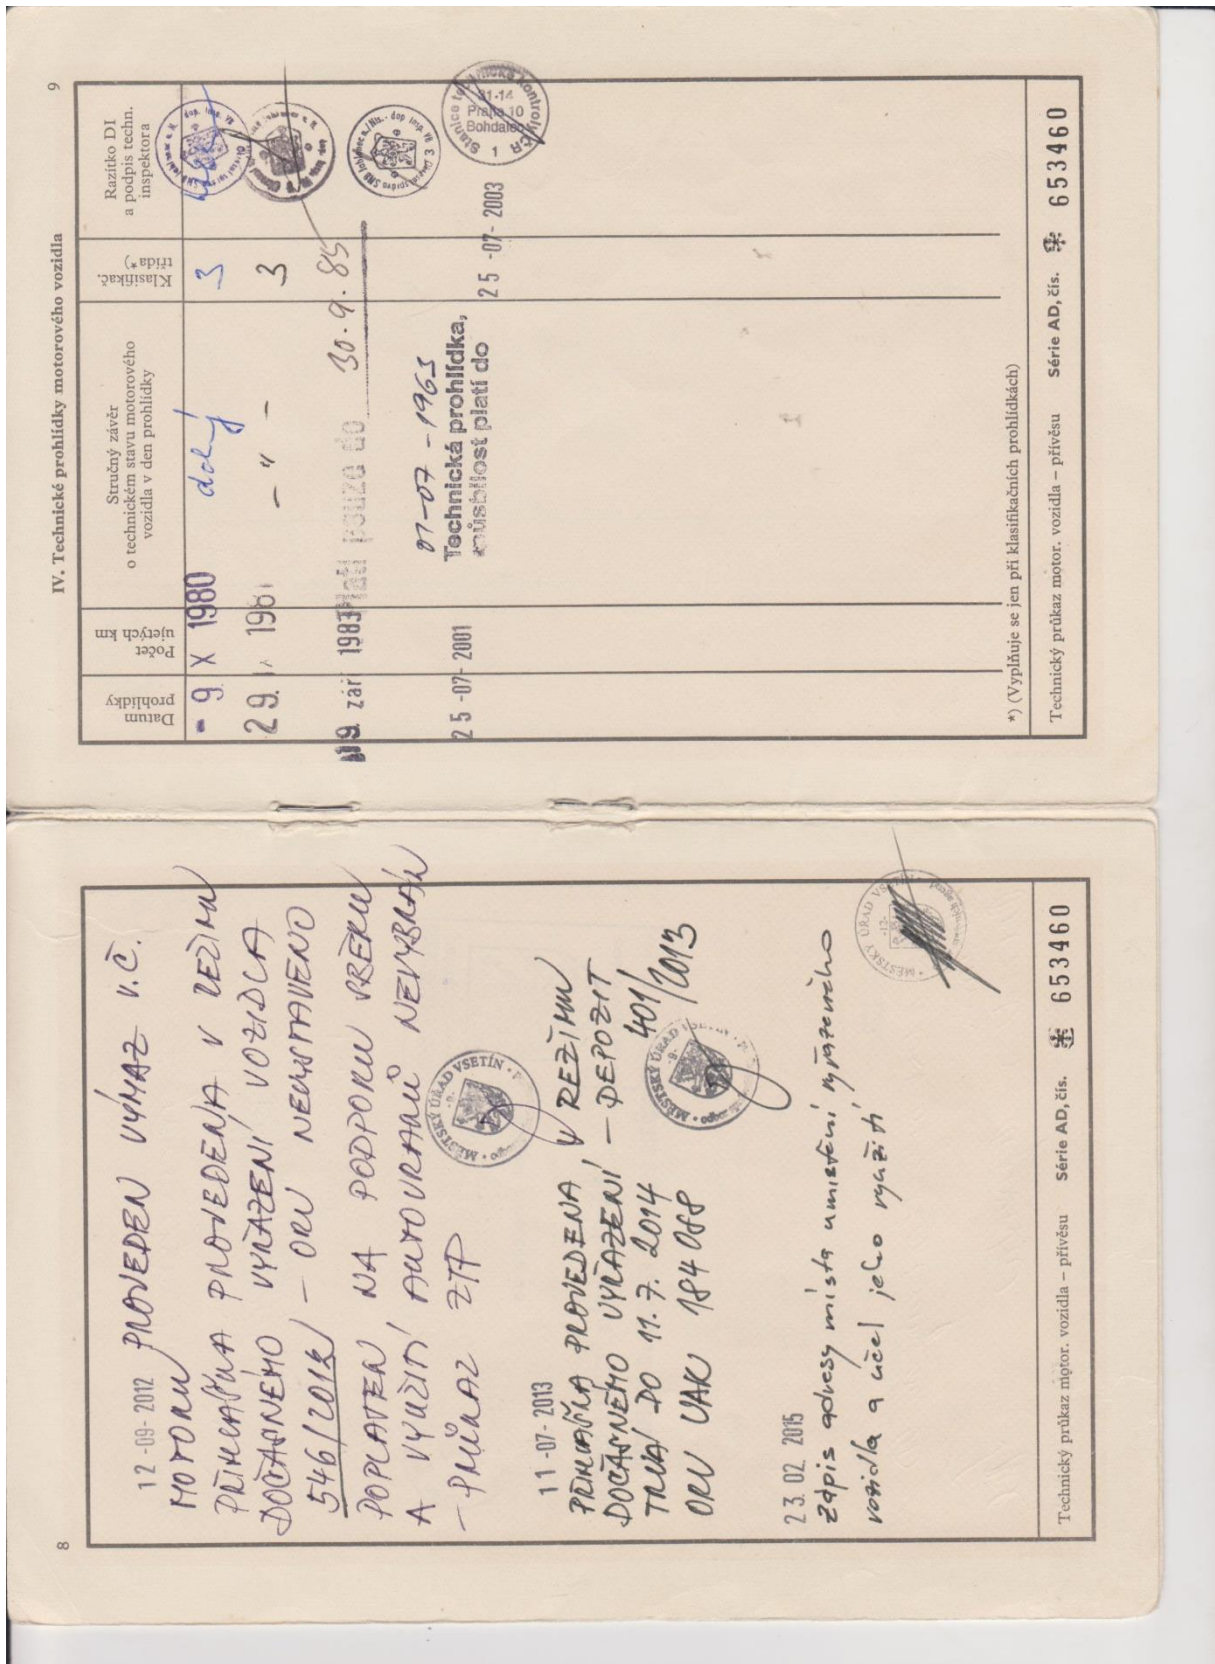 8
12 -09- 2012 PROVEDEN VÝMAZ V.Č.
MOTORU
PŘIHLÁŠKA PROVEDENA V REŽIMU
DOČASNÉHO VYŘAZENÍ VOZIDLA
546/2012 – ORV NEVYSTAVENO
POPLATEK NA PODPORU SBĚRU
A VYUŽITÍ AUTOVRAKŮ NEVYBRÁN
– PRŮKAZ ZTP
MĚSTSKÝ ÚŘAD VSETÍN
11 -07- 2013
PŘIHLÁŠKA PROVEDENA V REŽIMU
DOČASNÉHO VYŘAZENÍ – DEPOZIT
TRVÁ DO 11. 7. 2014 401/2013
ORV UAK 184088
MĚSTSKÝ ÚŘAD VSETÍN
23. 02. 2015
zápis adresy místa umístění vyřazeného
vozidla a účel jeho využití
MĚSTSKÝ ÚŘAD
Technický průkaz motor. vozidla – přívěsu Série AD, čís. 653460
9
IV. Technické prohlídky motorového vozidla
Datum
prohlídky
Počet
ujetých km
Stručný závěr
o technickém stavu motorového
vozidla v den prohlídky
Klasifikač.
třída*)
Razítko DI
a podpis techn.
inspektora
- 9. X 1980 dobrý 3
29. 198 – " – 3
19. září 1983 Platí pouze do 30. 9. 85
07-07-1963
Technická prohlídka,
25 -07- 2001 způsobilost platí do 25 -07- 2003
Stanice technické kontroly ČR
31-14
Praha 10
Bohdalec
1
*) (Vyplňuje se jen při klasifikačních prohlídkách)
Technický průkaz motor. vozidla – přívěsu Série AD, čís. 653460